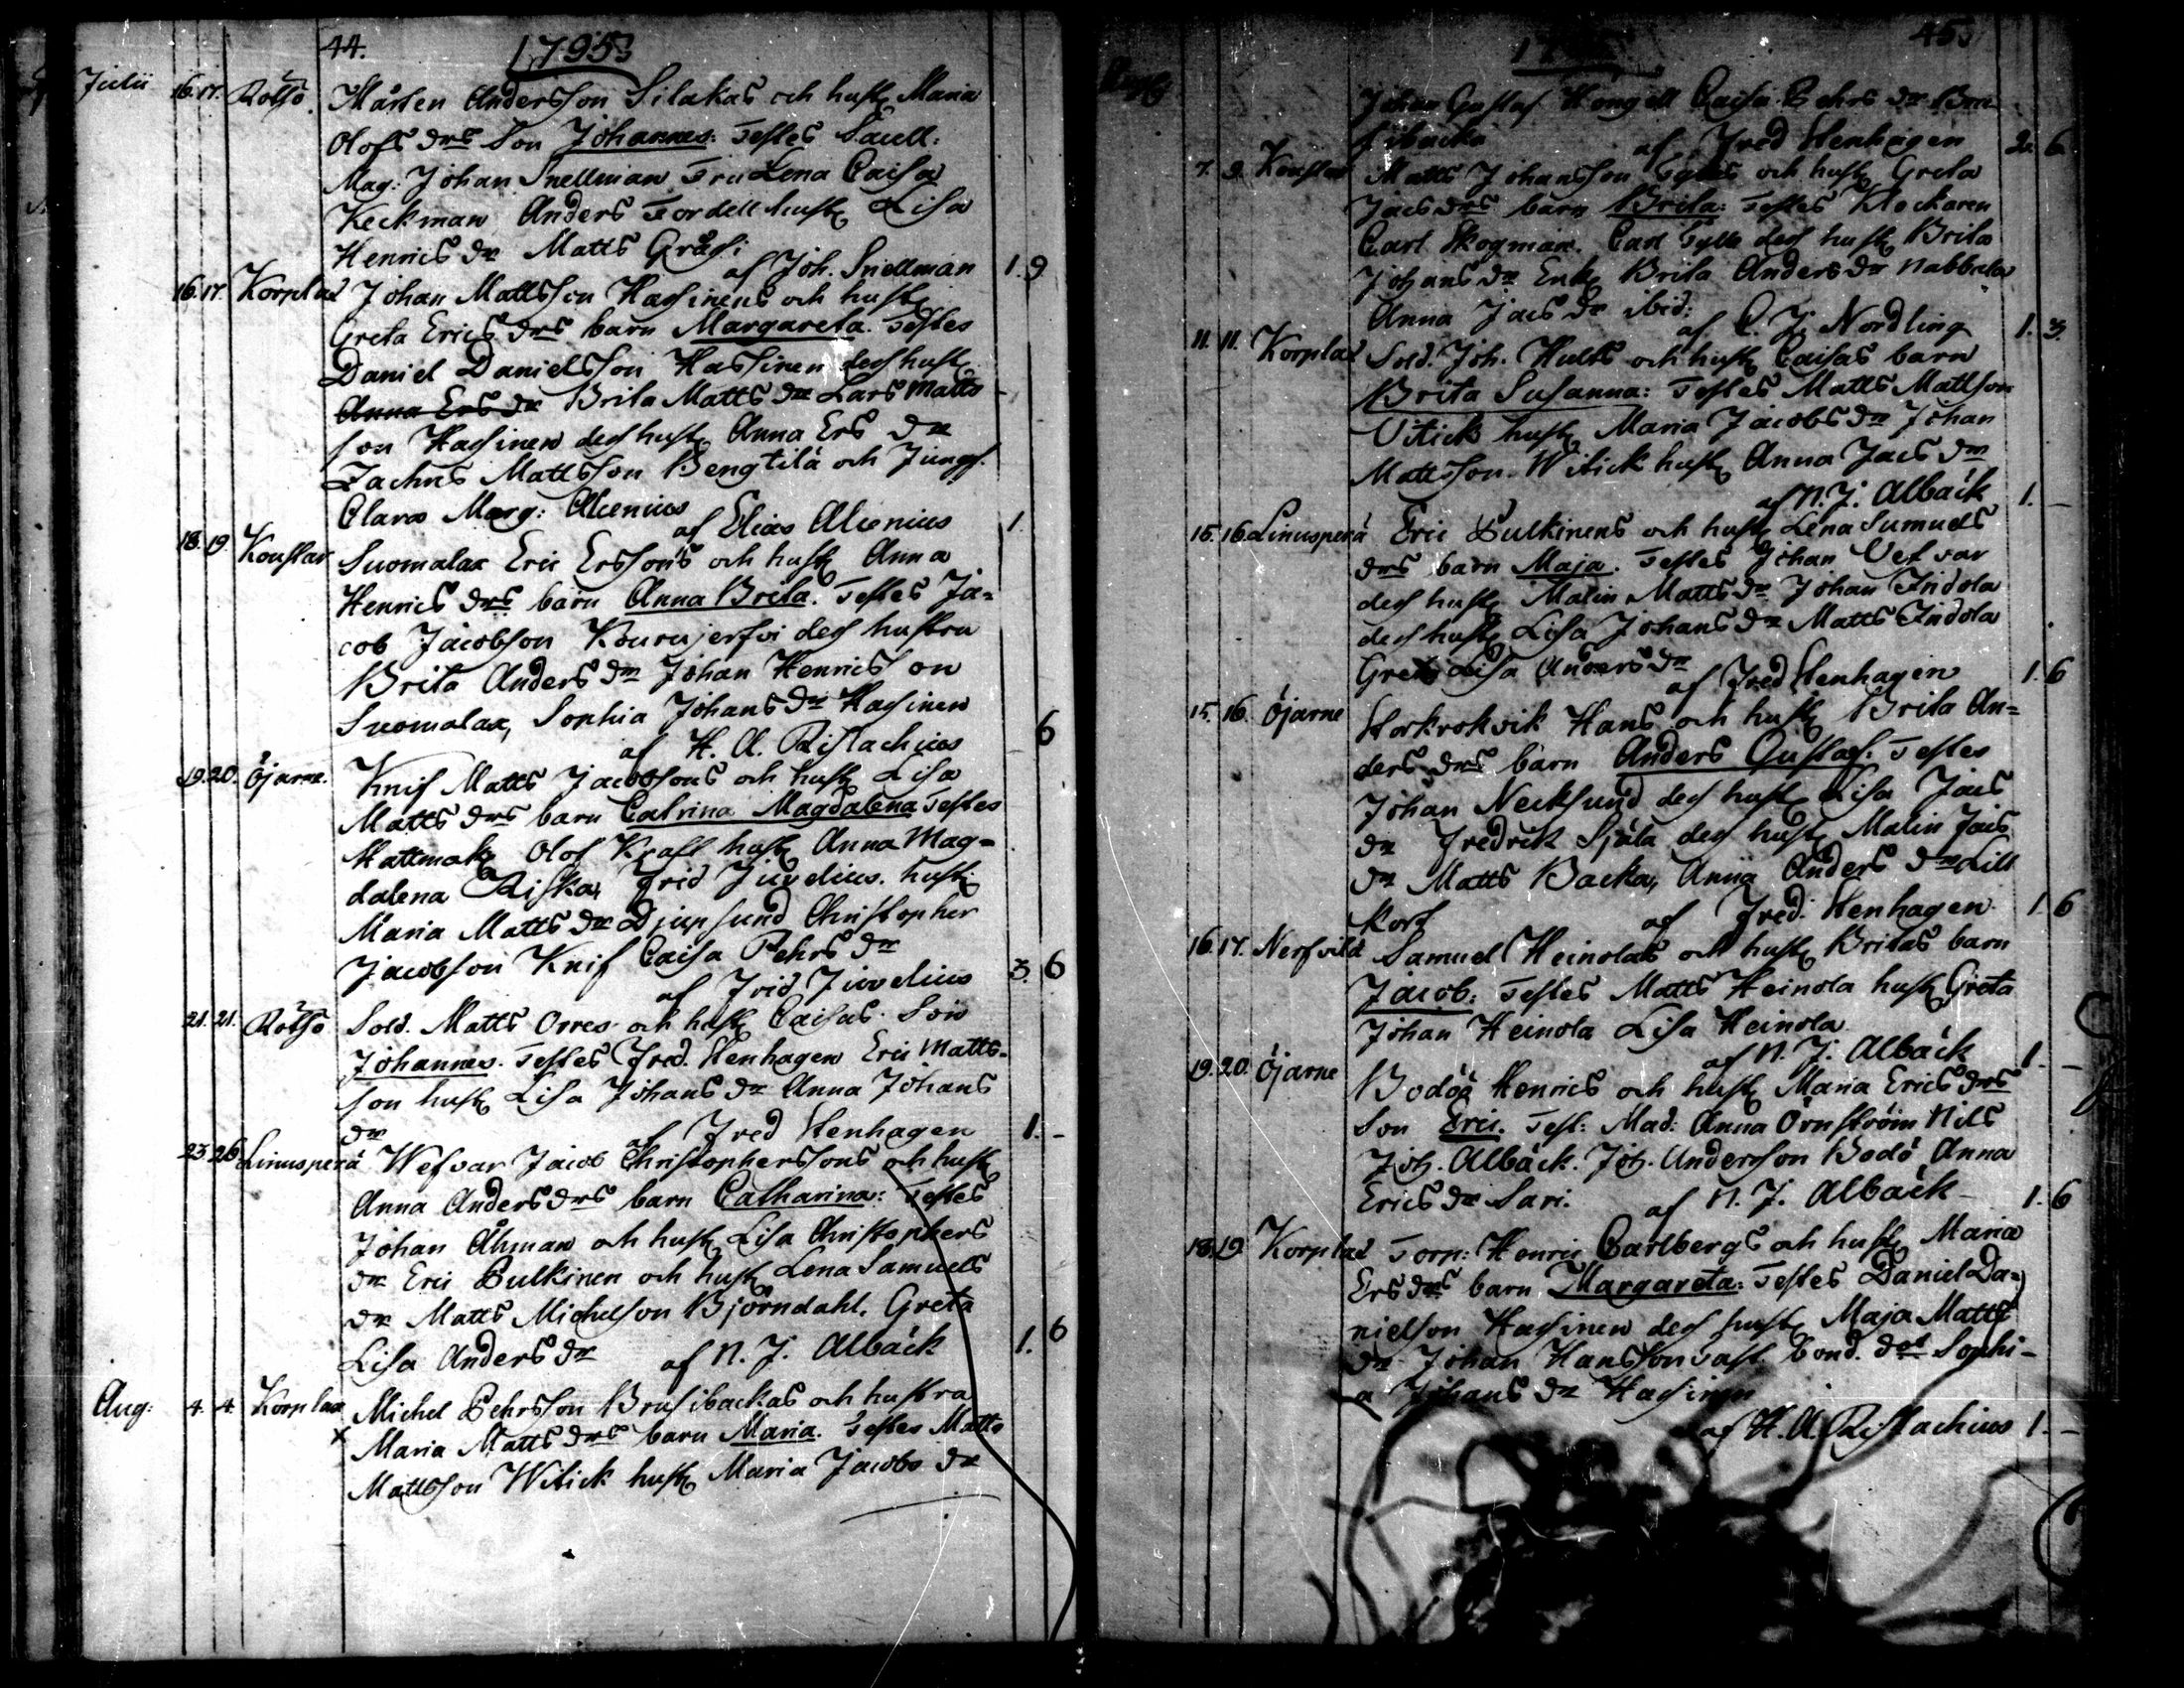 44.
1795
Julii 16. 17. Rotsö. Mårten Andersson Silakas och hustr Maria
Olofs drs Son Johannes: Testes Sacell:
Mag: Johan Snellman Fru Lena Caisa
Keckman Anders Fordell hustr Lisa
Henrics dr Matts Gråsi
af Joh. Snellman 1. 9
16. 17. Korplax Johan Mattsson Hassinens och hustr
Greta Erics drs barn Margareta. Testes
Daniel Danielsson Hassinen dess hustr
Anna Ers dr Brita Matts dr Lars Matts
son Hassinen dess hustr Anna Ers dr
Zachris Mattsson Bengtilä och Jungf.
Clara Marg: Alcenius
af Elias Alcenius 1.
18. 19. Suomalax Eric Erssons och hustr Anna
Henrics drs barn Anna Brita. Testes Ja=
cob Jacobson Kourujerfvi dess hustru
Brita Anders dr Johan Henricson
Suomalax, Sophia Johans dr Hassinen
af H. A. Ristachius 6
19. 20. Öjarne. Knif Matts Jacobsons och hustr Lisa
Matts drs barn Catrina Magdalena Testes
Hattmak Olof Kraft hustr Anna Mag=
dalena Riska, Frid Juvelius. hustr
Maria Matts dr Djupsund Christopher
Jacobson Knif Caisa Pehrs dr
af Frid Juvelius 3. 6
21. 21. Rotsö Sold. Matts Orres och hustr Caisas Son
Johannes. Testes Fred. Stenhagen Eric Matts=
son hustr Lisa Johans dr Anna Johans
dr af Fred Stenhagen 1. -
25 26 Linusperä Wefvar Jacob Christopherssons och hustr
Anna Anders drs barn Catharina: Testes
Johan Åhman och hustr Lisa Christophers
dr Eric Pulkinen och hustr Lena Samuels
dr Matts Michelson Björndahl. Greta
Lisa Anders dr af N. J. Albäck 1. 6
Aug: 4. 4. Korplax Michel Pehrsson Brusibackas och hustru
x Maria Matts drs barn Maria. Testes Matts
Mattsson Witick hustr Maria Jacobs dr
45
Johan Gustaf Hongell Caisa Pehrs dr Bru-
sibacka af Fred Stenhagen 2. 6
7. 9. Matts Johansson Gylles och hustr Greta
Jacs drs barn Brita: Testes Klockaren
Carl Skogman. Carl Gylle dess hustr Brita
Johans dr Enk Brita Anders dr Nabbela
Anna Jacs dr ibid:
af C. J. Nordling 1. 3.
11. 11. Korplax Sold. Joh. Hults och hustr Caisas barn
Brita Susanna: Testes Matts Mattson
Vitick hustr Maria Jacobs dr Johan
Mattsson Witick hustr Anna Jacs dr
af N. J. Albäck 1. -
15. 16 Linusperä Eric Pulkinens och hustr Lena Samuels
drs barn Maja. Testes Johan Vefvar
dess hustr Malin Matts dr Johan Indola
dess hustr Lisa Johans dr Matts Indola
Greta Lisa Anders dr
af Fred Stenhagen 1. 6
15. 16. Öjarne Storkrokvik Hans och hustr Brita An=
ders drs barn Anders Gustaf: Testes
Johan Necksund dess hustr Lisa Jacs
dr Fredrik Själa dess hustr Malin Jacs
dr Matts Backa, Anna Anders dr Lill
Kors af Fred: Stenhagen 1. 6
16. 17. Nerfvild Samuel Heinolas och hustr Britas barn
Jacob: Testes Matts Heinola hustr Greta
Johan Heinola Lisa Heinola
af N. J. Albäck 1. -
19. 20. Öjarne Bodöä Henrics och hustr Maria Erics drs
Son Eric. Test: Mad: Anna Örnström Nils
Joh. Albäck. Joh. Andersson Bodö Anna
Erics dr Sari. af N. J. Albäck 1. 6
18. 19 Korplax Torp: Henric Carlbergs och hustr Maria
Ers drs barn Margareta: Testes Daniel Da=
nielson Hassinen dess hustr Maja Matts
dr Johan Hansson bond. dot Sophi-
a Johans dr Hassinen
af H. A. Ristachius 1. -